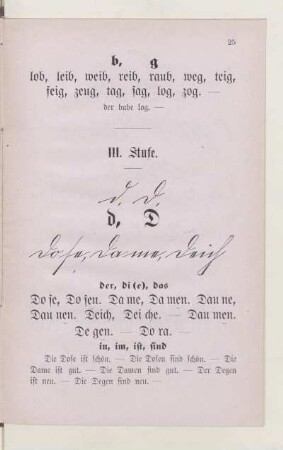 25
b, g
lob, leib, weib, reib, raub, weg, teig,
feig, zeug, tag, sag, log, zog. —
der bube log. —
III. Stufe.
d, D
d, D
Dose, Dame, Deich
der, di(e), das
Do se, Do sen. Da me, Da men. Dau ne,
Dau nen. Deich, Dei che. — Dau men.
De gen. — Do ra. —
in, im, ist, sind
Die Dose ist schön. — Die Dosen sind schön. — Die
Dame ist gut. — Die Damen sind gut. — Der Degen
ist neu. — Die Degen sind neu. —